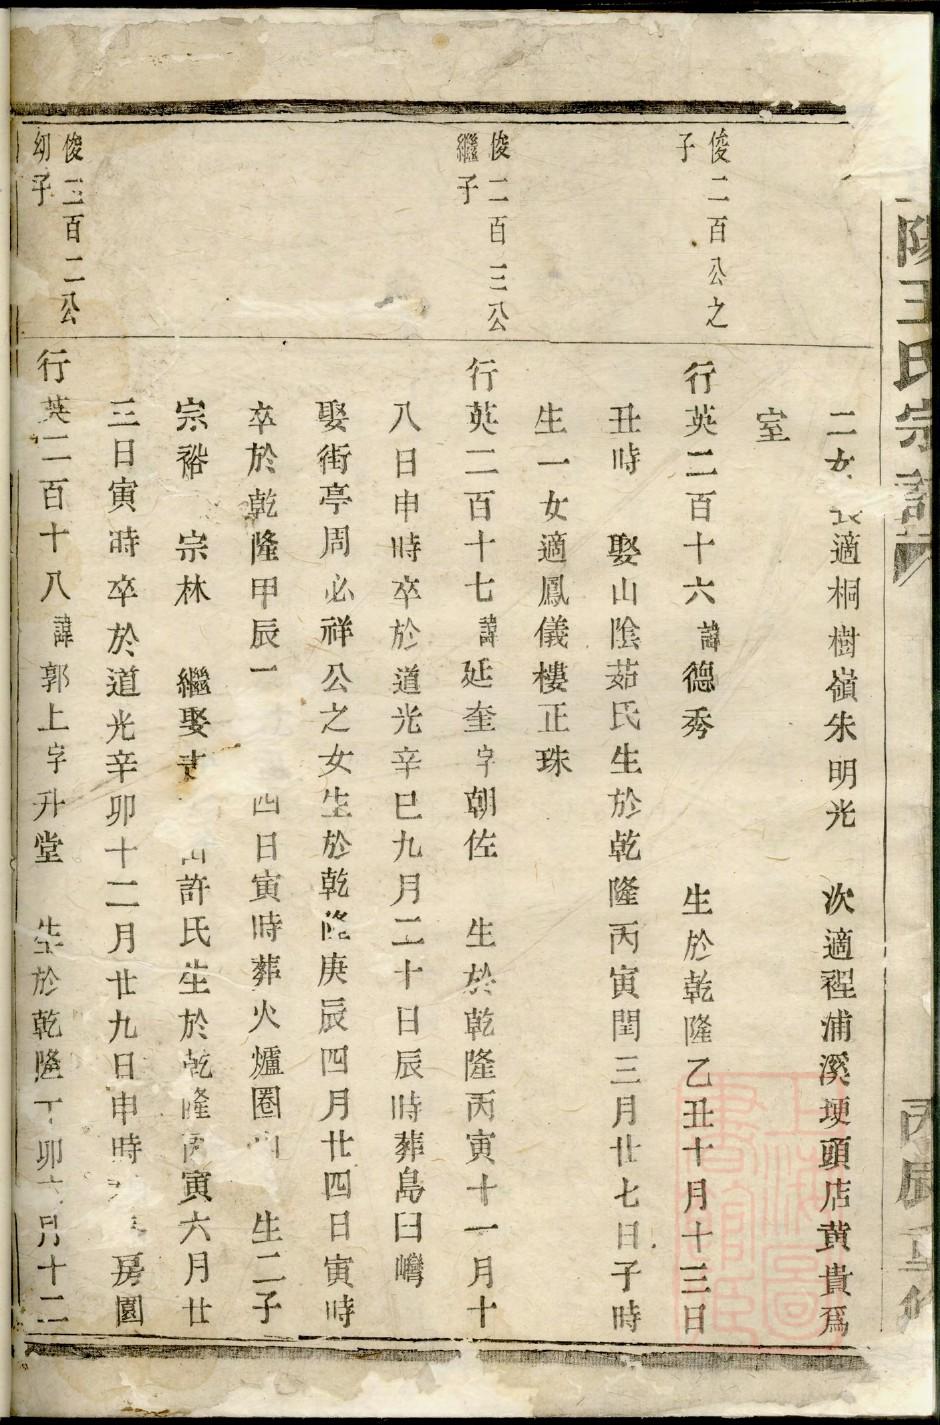 陽王氏宗譜
丙辰重修
二女長適桐樹嶺朱明光　次適程浦溪埂頭店黃貴爲
室
俊二百公之
子
行英二百十六諱德秀　生於乾隆乙丑十月十三日
丑時　娶山陰茹氏生於乾隆丙寅閏三月廿七日子時
生一女適鳳儀樓正珠
俊二百三公
繼子
行英二百十七諱延奎字朝佐　生於乾隆丙寅十一月十
八日申時卒於道光辛巳九月二十日辰時葬島臼灣
娶街亭周必祥公之女生於乾隆庚辰四月廿四日寅時
卒於乾隆甲辰 四日寅時葬火爐圈山　生二子
宗裕　宗林　繼娶 許氏生於乾隆丙寅六月廿
三日寅時卒於道光辛卯十二月廿九日申時 房園
俊二百二公
幼子
行英二百十八諱郭上字升堂　生於乾隆丁卯 月十二